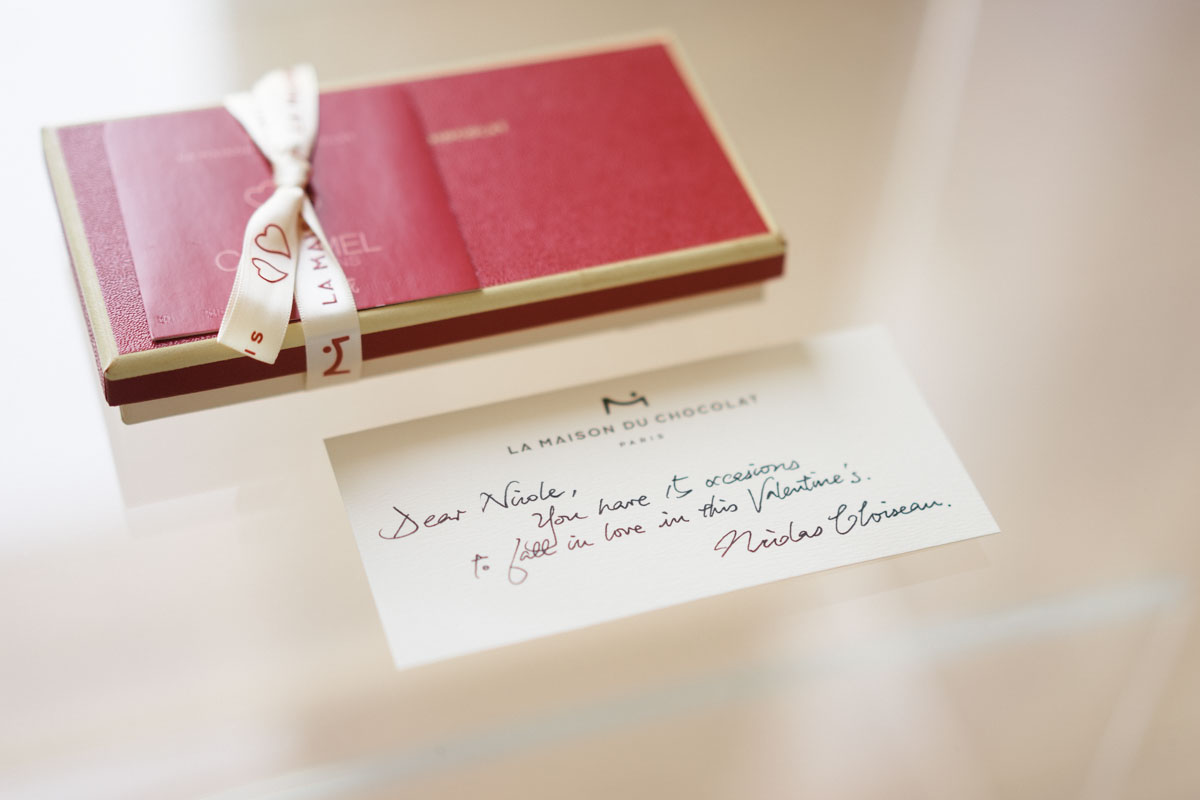 LA MA
IS
LA MAISON DU CHOCOLAT
PARIS
Dear Nicole,
You have 15 occesions
to fall in love in this Valentine's.
Nicolas Cloiseau.